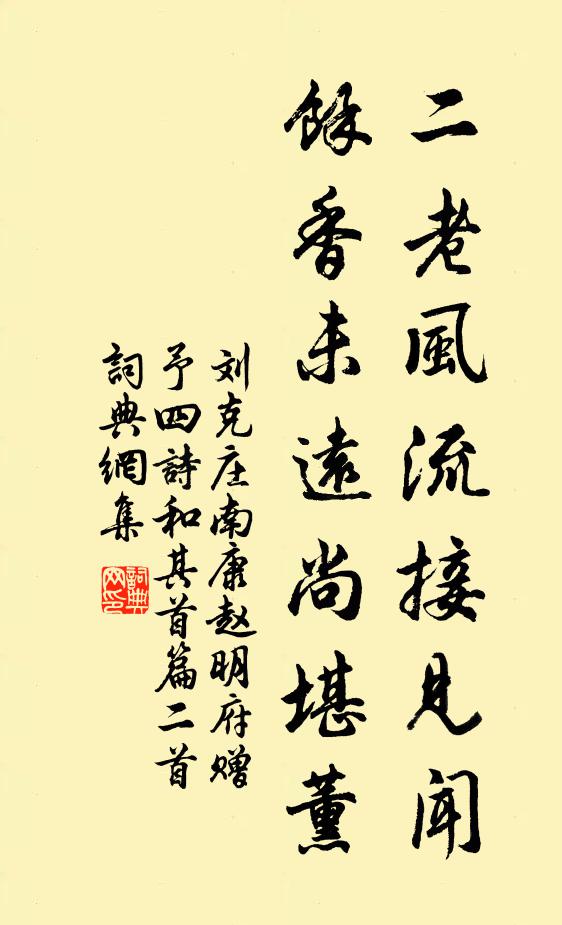 二老風流接見聞
餘香未遠尚堪薰
刘克庄南康赵明府赠
予四詩和其首篇二首
詞典網集
詞典
网印